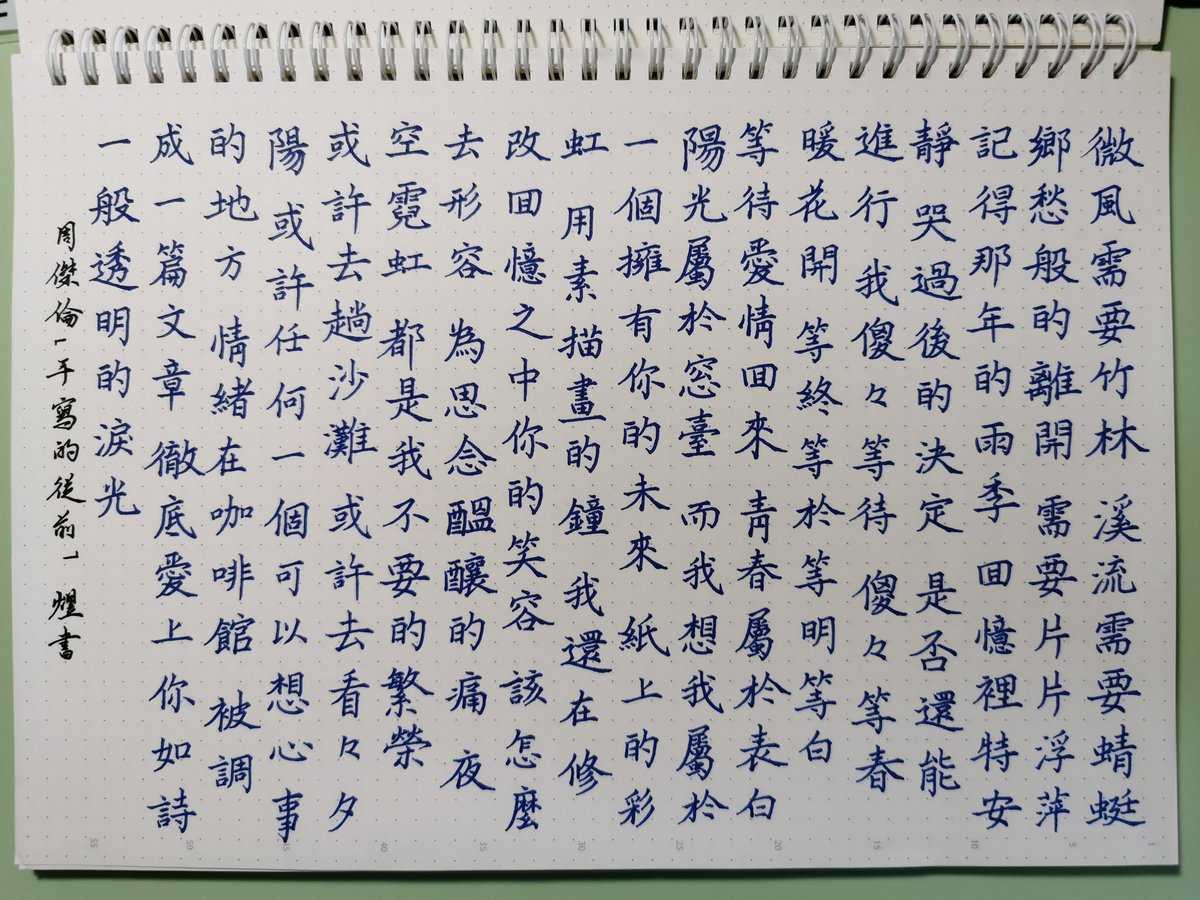 微風需要竹林 溪流需要蜻蜓
鄉愁般的離開 需要片片浮萍
記得那年的雨季 回憶裡特安
靜 哭過後的決定 是否還能
進行 我傻々等待 傻々等春
暖花開 等終等於等明等白
等待愛情回來 青春屬於表白
陽光屬於窓臺 而我想我屬於
一個擁有你的未來 紙上的彩
虹 用素描畫的鐘 我還在修
改回憶之中你的笑容 該怎麼
去形容 為思念醞釀的痛 夜
空霓虹 都是我不要的繁榮
或許去趟沙灘 或許去看々夕
陽 或許任何一個可以想心事
的地方 情緒在咖啡館 被調
成一篇文章 徹底愛上你如詩
一般透明的淚光
周傑倫 手寫的從前 煜書
1 5 10 15 20 25 30 35 40 45 50 55